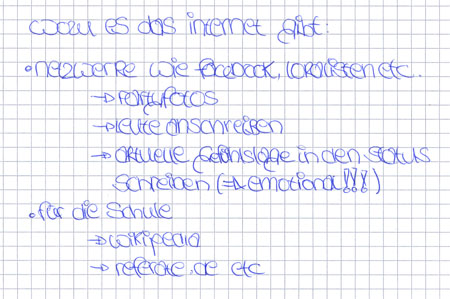 wozu es das internet gibt:
• netzwerke wie facebook, lokalisten etc.
→ partyfotos
→ leute anschreiben
→ aktuelle gefühlslage in den status
schreiben (=> emotional!!!)
• für die schule
→ wikipedia
→ referate.de etc